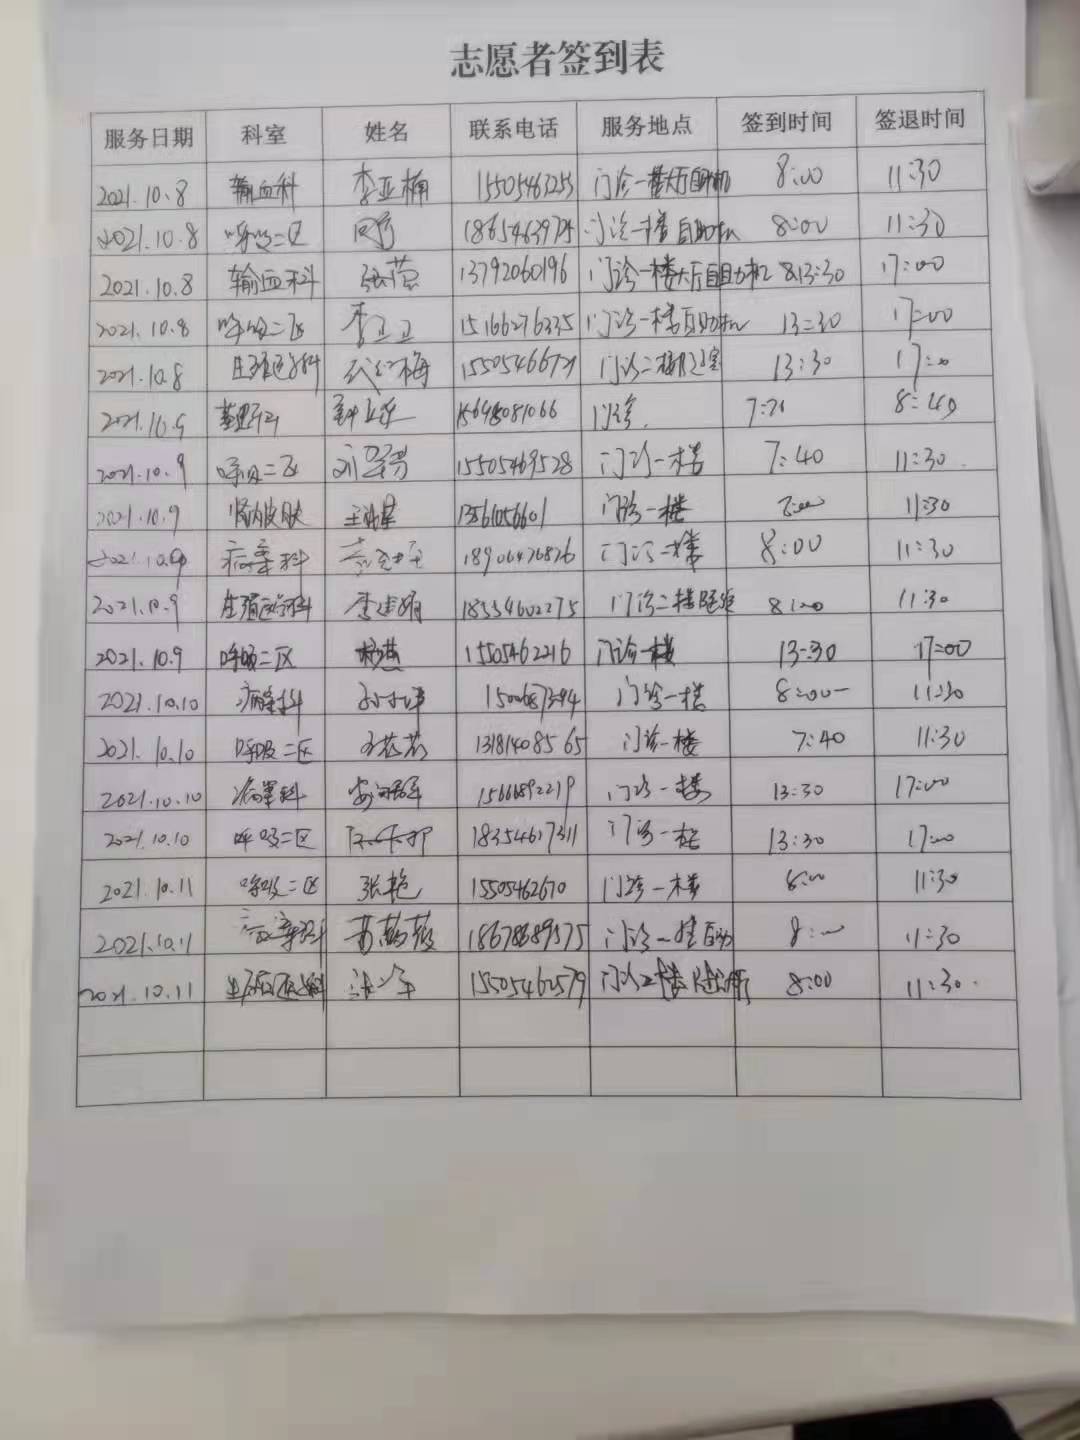 志愿者签到表
服务日期 科室 姓名 联系电话 服务地点 签到时间 签退时间
2021.10.8 输血科 李亚楠 15505463253 门诊一楼大厅自助机 8:00 11:30
2021.10.8 呼吸二区 18654639725 门诊一楼自助机 8:00 11:30
2021.10.8 输血科 张蕾 13792060196 门诊一楼大厅自助机 13:30 17:00
2021.10.8 呼吸二区 李卫卫 15166276335 门诊一楼自助机 13:30 17:00
2021.10.8 生殖医学科 15505466721 门诊二楼 13:30 17:00
2021.10.9 门诊 8:40
2021.10.9 呼吸二区 15505469528 门诊一楼 7:40 11:30
2021.10.9 肾内皮肤 13561056601 门诊一楼 11:30
2021.10.9 病案科 18906476826 门诊一楼 8:00 11:30
2021.10.9 生殖医学科 李建娟 18554602275 门诊二楼 8:00 11:30
2021.10.9 呼吸二区 杨燕 15505462216 门诊一楼 13:30 17:00
2021.10.10 病案科 门诊一楼 8:00 11:30
2021.10.10 呼吸二区 13181408565 门诊一楼 7:40 11:30
2021.10.10 病案科 15666892219 门诊一楼 13:30 17:00
2021.10.10 呼吸二区 18354617311 门诊一楼 13:30 17:00
2021.10.11 呼吸二区 张艳 15505462670 门诊一楼 8:00 11:30
2021.10.11 病案科 18678689575 门诊一楼自助 8:00 11:30
2021.10.11 15505462579 门诊2楼 8:00 11:30